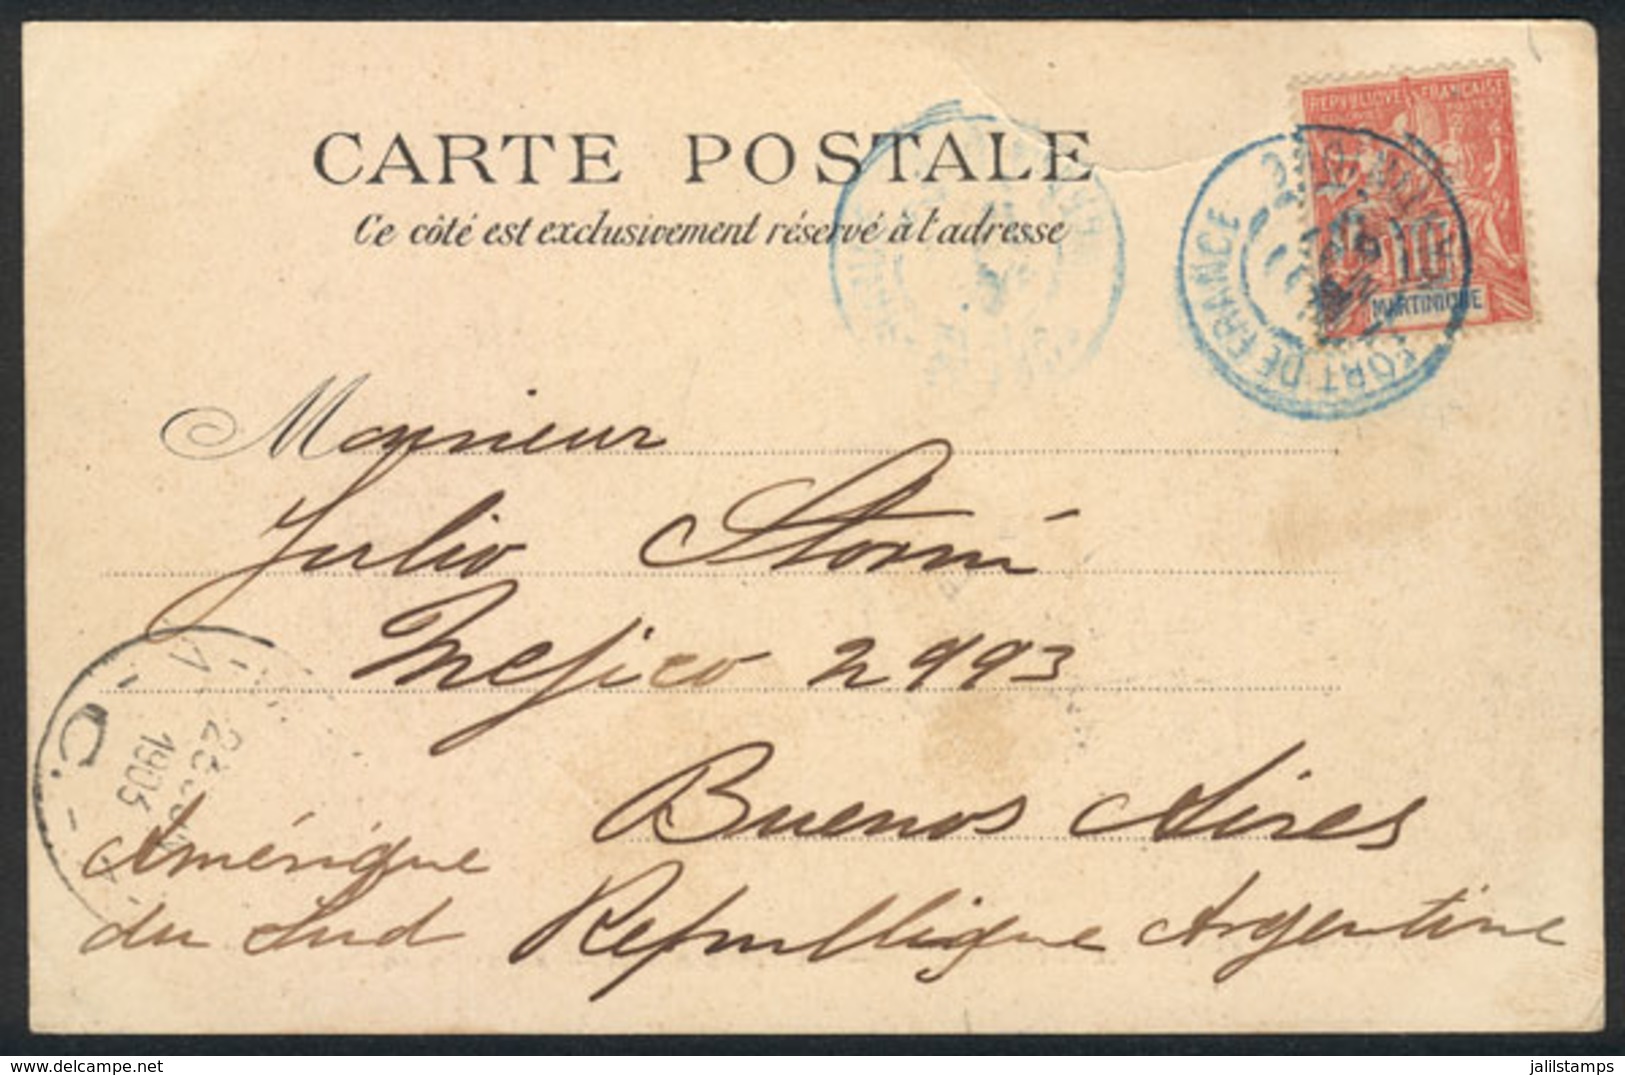 REPVBLIQVE FRANÇAISE
POSTES
CARTE POSTALE
Ce côté est exclusivement réservé à l'adresse
10
MARTINIQUE
FORT DE FRANCE
Monsieur
Julio Storni
Mejico 2993
Buenos Aires
Amérique
du Sud
Republique Argentine
C.
1905
www.delcampe.net
jalilstamps